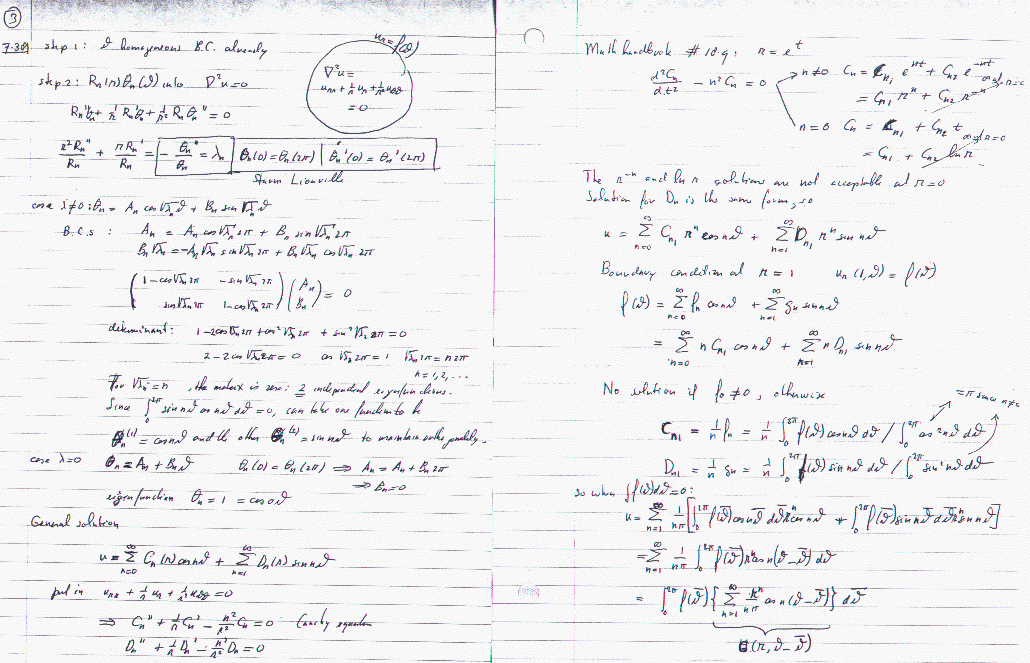 3
7.39
step 1: ϑ homogeneous B.C. already
u_r = f(ϑ)
∇²u =
u_rr + 1/r u_r + 1/r² u_ϑϑ
= 0
step 2: R_n(r) Θ_n(ϑ) into ∇²u = 0
R_n''Θ_n + 1/r R_n'Θ_n + 1/r² R_n Θ_n'' = 0
r²R_n''/R_n + rR_n'/R_n = -Θ_n''/Θ_n = λ_n | Θ_n(0) = Θ_n(2π) | Θ_n'(0) = Θ_n'(2π)
Sturm Liouville
case λ≠0: Θ_n = A_n cos √λ_n ϑ + B_n sin √λ_n ϑ
B.C.s: A_n = A_n cos √λ_n 2π + B_n sin √λ_n 2π
B_n √λ_n = -A_n √λ_n sin √λ_n 2π + B_n √λ_n cos √λ_n 2π
( 1-cos √λ_n 2π   -sin √λ_n 2π ) ( A_n ) = 0
( sin √λ_n 2π   1-cos √λ_n 2π ) ( B_n )
determinant: 1 - 2cos √λ_n 2π + cos² √λ_n 2π + sin² √λ_n 2π = 0
2 - 2cos √λ_n 2π = 0   cos √λ_n 2π = 1   √λ_n 2π = n 2π
n = 1, 2, ...
For √λ_n = n, the matrix is zero: 2 independent eigenfunctions.
Since ∫_0^2π sin nϑ cos nϑ dϑ = 0, can take one function to be
Θ_n^(1) = cos nϑ and the other Θ_n^(2) = sin nϑ to maintain orthogonality.
case λ=0   Θ_n = A_n + B_n ϑ   Θ_n(0) = Θ_n(2π) ⇒ A_n = A_n + B_n 2π
⇒ B_n = 0
eigenfunction Θ_n = 1 = cos 0ϑ
General solution
u = Σ_{n=0}^∞ C_n(r) cos nϑ + Σ_{n=1}^∞ D_n(r) sin nϑ
put in u_rr + 1/r u_r + 1/r² u_ϑϑ = 0
⇒ C_n'' + 1/r C_n' - n²/r² C_n = 0   Cauchy equation
D_n'' + 1/r D_n' - n²/r² D_n = 0
Math handbook # 18.9: r = e^t
d²C_n/dt² - n²C_n = 0
n≠0   C_n = C_n1 e^nt + C_n2 e^-nt
∞ at r=0
= C_n1 r^n + C_n2 r^-n
n=0   C_n = C_n1 + C_n2 t
∞ at r=0
= C_n1 + C_n2 ln r
The r^-n and ln r solutions are not acceptable at r=0
Solution for D_n is the same form, so
u = Σ_{n=0}^∞ C_n1 r^n cos nϑ + Σ_{n=1}^∞ D_n1 r^n sin nϑ
Boundary condition at r=1   u_r(1,ϑ) = f(ϑ)
f(ϑ) = Σ_{n=0}^∞ f_n cos nϑ + Σ_{n=1}^∞ g_n sin nϑ
= Σ_{n=0}^∞ n C_n1 cos nϑ + Σ_{n=1}^∞ n D_n1 sin nϑ
No solution if f_0 ≠ 0, otherwise
= π since n≠0
C_n1 = 1/n f_n = 1/n ∫_0^2π f(ϑ) cos nϑ dϑ / ∫_0^2π cos² nϑ dϑ
D_n1 = 1/n g_n = 1/n ∫_0^2π f(ϑ) sin nϑ dϑ / ∫_0^2π sin² nϑ dϑ
so when ∫f(ϑ)dϑ = 0:
u = Σ_{n=1}^∞ 1/nπ [∫_0^2π f(ϑ̄) cos nϑ̄ dϑ̄ r^n cos nϑ + ∫_0^2π f(ϑ̄) sin nϑ̄ dϑ̄ r^n sin nϑ]
= Σ_{n=1}^∞ 1/nπ ∫_0^2π f(ϑ̄) r^n cos n(ϑ-ϑ̄) dϑ̄
= ∫_0^2π f(ϑ̄) {Σ_{n=1}^∞ r^n/nπ cos n(ϑ-ϑ̄)} dϑ̄
G(r, ϑ-ϑ̄)